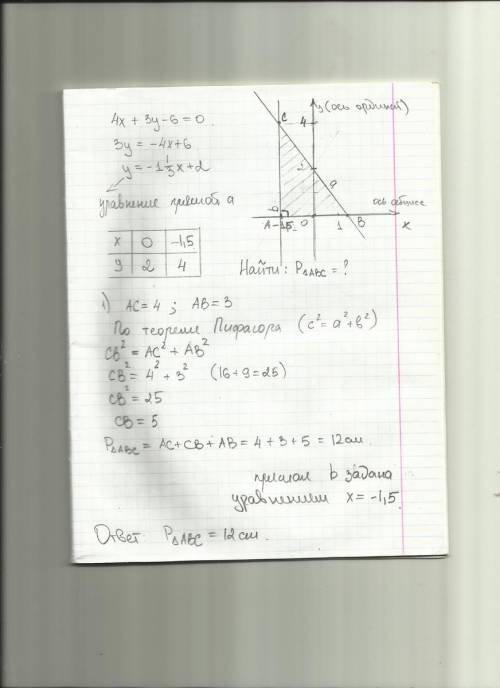 4x + 3y - 6 = 0
3y = -4x+6
y = -1 1/3 x + 2
уравнение прямой a
x | 0 | -1,5
y | 2 | 4
y (ось ординат)
C
4
a
ось абсцисс
A -1,5 0 1 B x
Найти: P△ABC = ?
1) AC = 4 ; AB = 3
По теореме Пифагора (c² = a² + b²)
CB² = AC² + AB²
CB² = 4² + 3² (16 + 9 = 25)
CB² = 25
CB = 5
P△ABC = AC + CB + AB = 4 + 3 + 5 = 12 см.
прямая b задана
уравнением x = -1,5
Ответ P△ABC = 12 см.